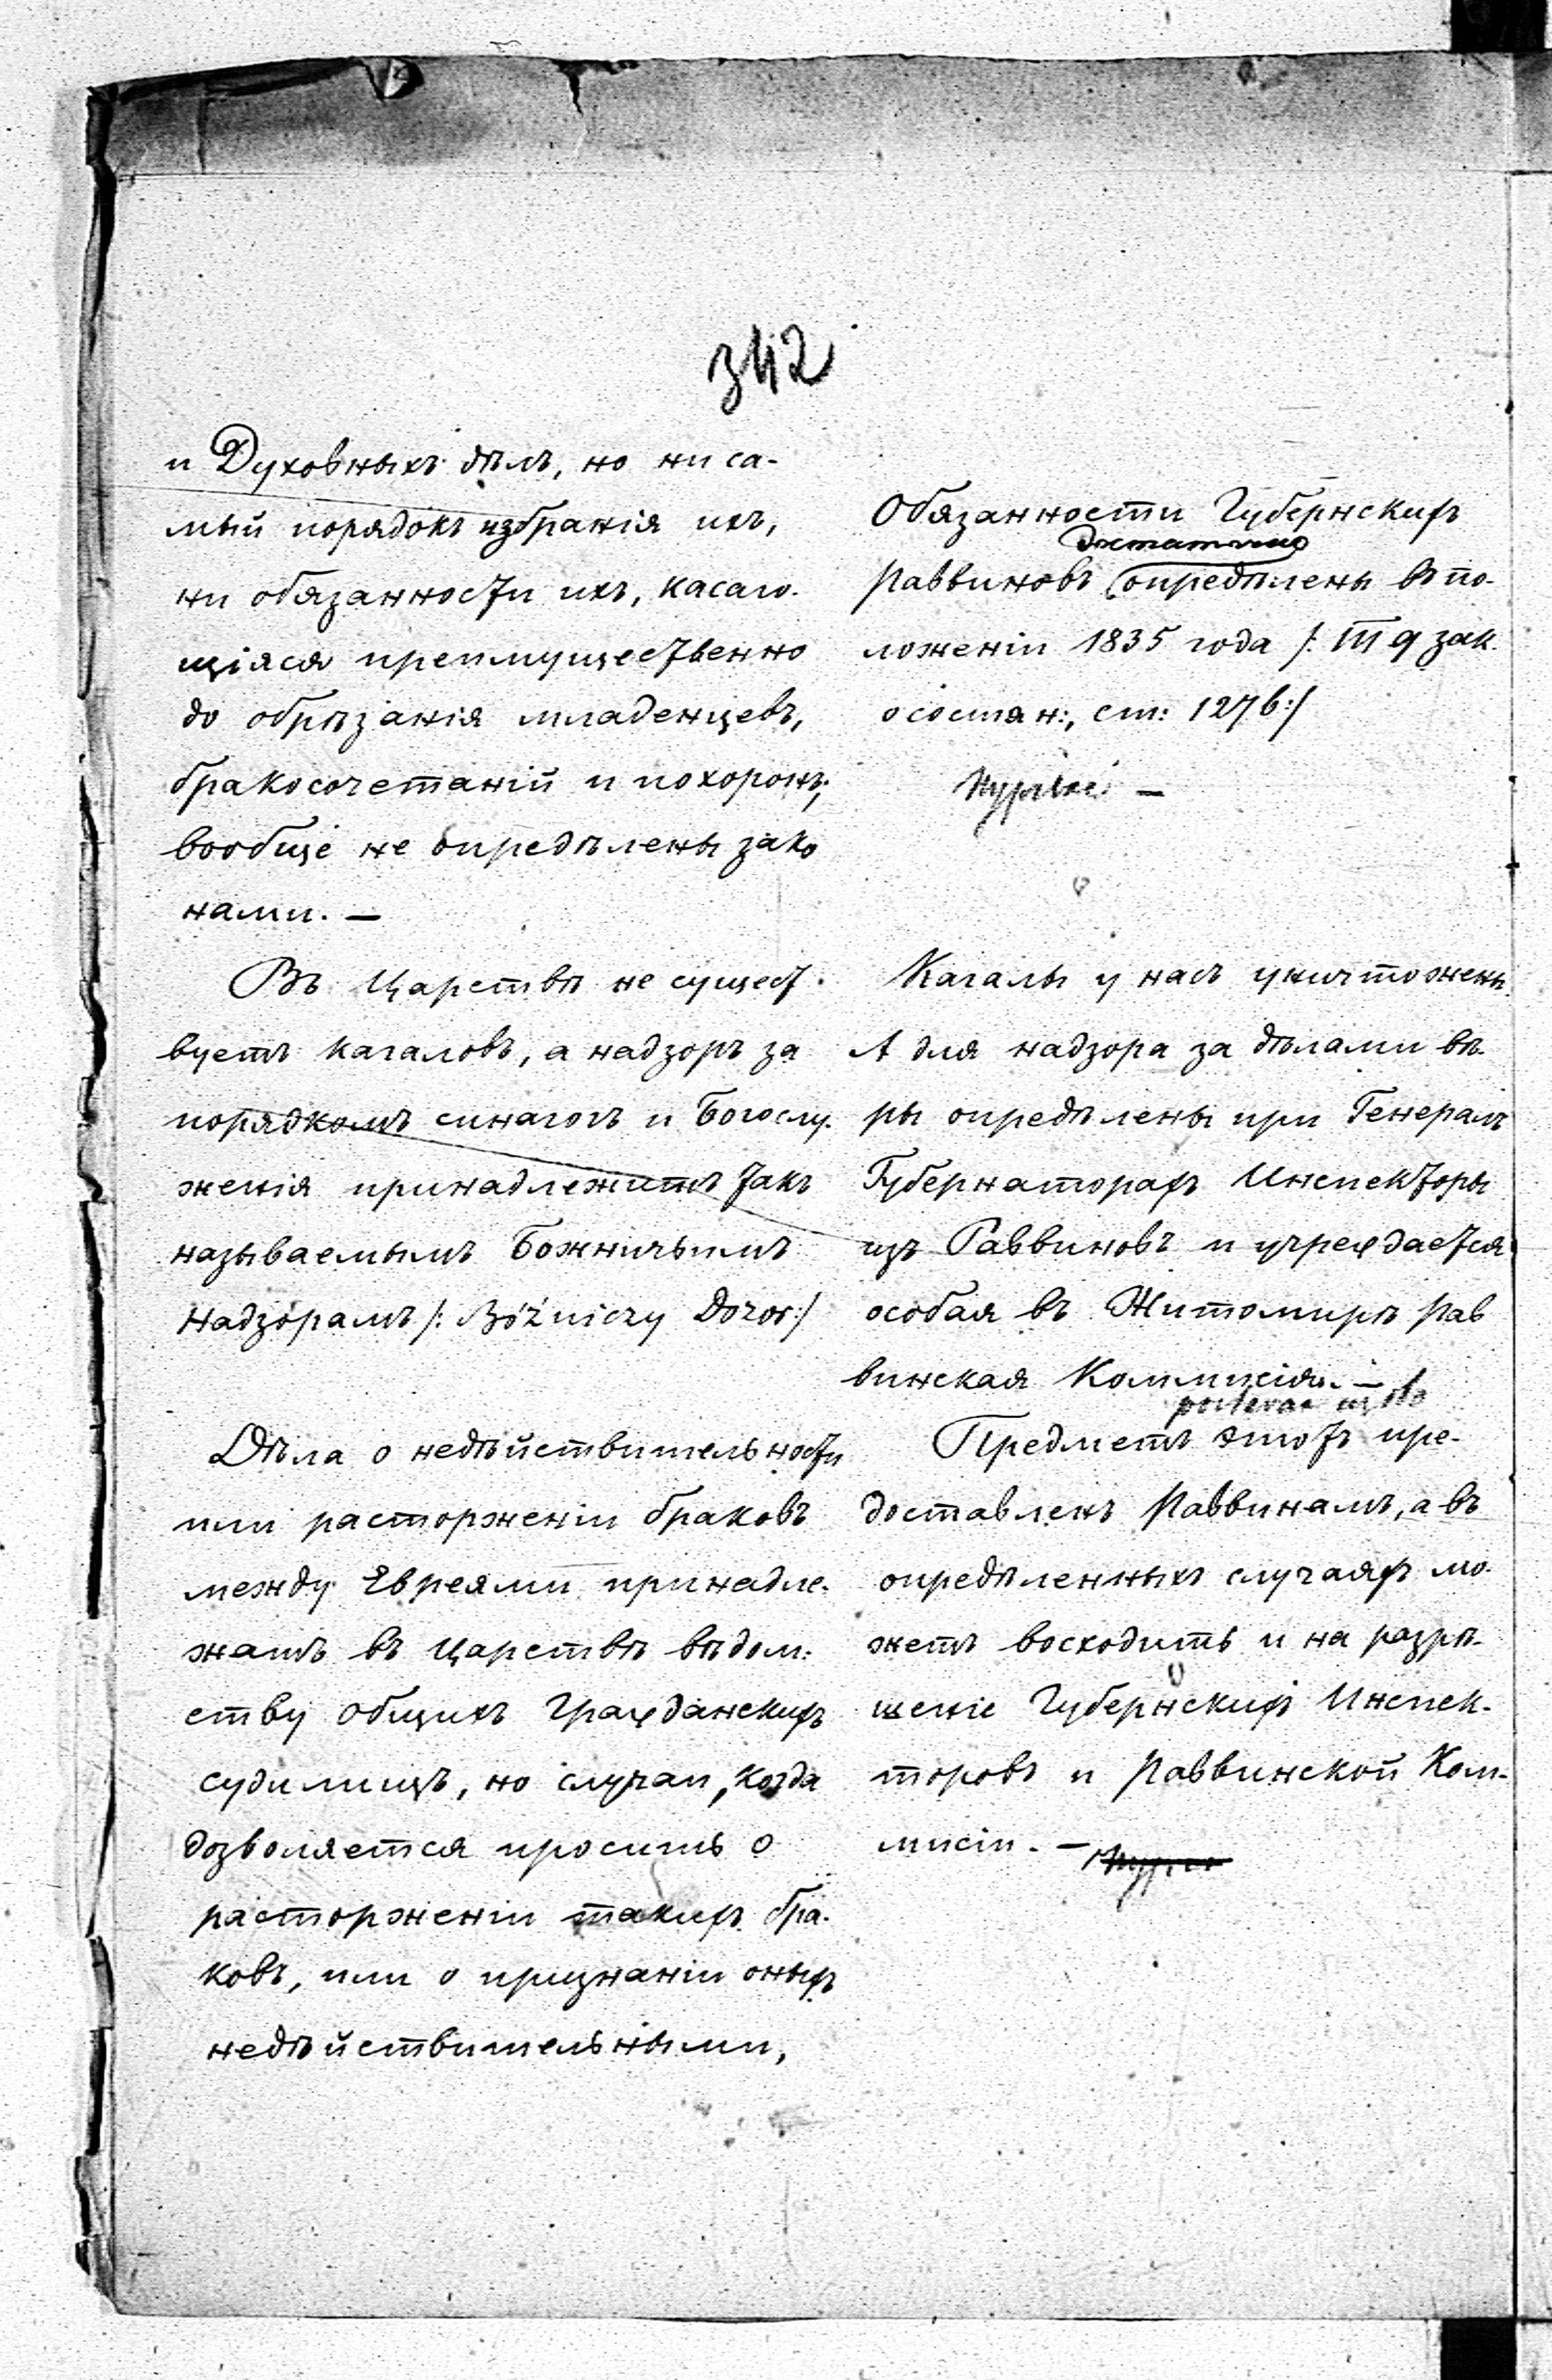 342
и Духовныхъ дѣлъ, но ни са-
мый порядокъ избранія ихъ,
ни обязанности ихъ, касаю-
щіяся преимущественно
до обрѣзанія младенцевъ,
бракосочетаній и похоронъ,
вообще не опредѣлены зако
нами. —
Въ Царствѣ не сущест-
вуетъ кагаловъ, а надзоръ за
порядкомъ синагогъ и Богослу-
женія принадлежитъ такъ
называемымъ Божничьимъ
надзорамъ /: Bóżniczy Dozor :/
Дѣла о недѣйствительности
или расторженіи браковъ
между Евреями принадле-
жатъ въ Царствѣ вѣдом-
ству общихъ Гражданскихъ
судилищъ, но случаи, когда
дозволяется просить о
расторженіи такихъ бра-
ковъ, или о признаніи оныхъ
недѣйствительными,
Обязанности Губернскихъ
достаточно
Раввиновъ опредѣлены въ по-
ложеніи 1835 года /: Т. 9 зак.
о состян:, ст: 1276 :/
Кагалы у насъ уничтожены.
А для надзора за дѣлами вѣ-
ры опредѣлены при Генералъ
Губернаторахъ Инспекторы
изъ Раввиновъ и учреждается
особая въ Житомирѣ Рав
винская Коммисія. —
Предметъ этотъ пре-
доставленъ Раввинамъ, а въ
опредѣленныхъ случаяхъ мо-
жетъ восходить и на разрѣ-
шеніе Губернскихъ Инспек-
торовъ и Раввинской Ком-
мисіи. —